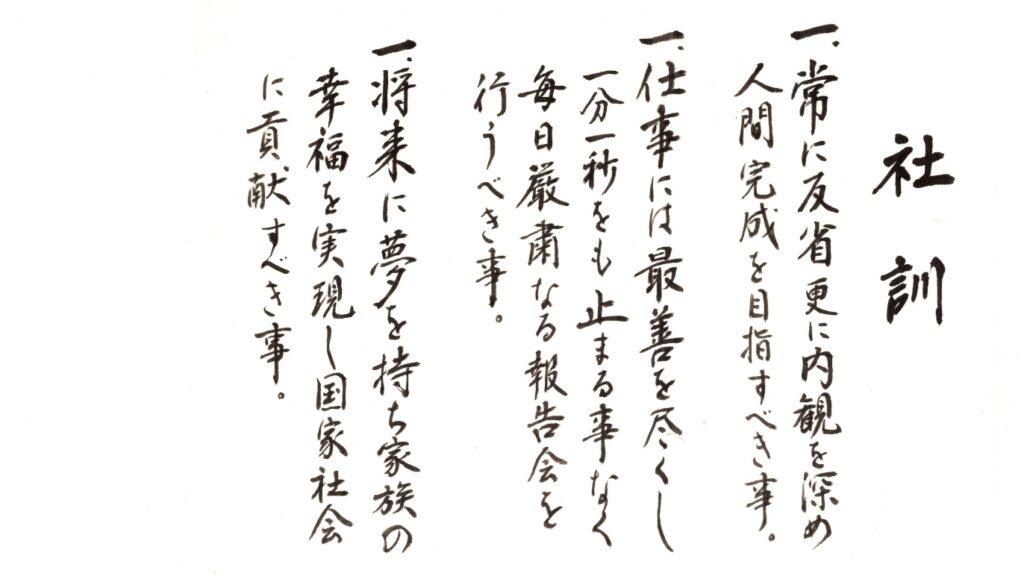 社訓
一、常に反省更に内観を深め
人間完成を目指すべき事。
一、仕事には最善を尽くし
一分一秒をも止まる事なく
毎日厳粛なる報告会を
行うべき事。
一、将来に夢を持ち家族の
幸福を実現し国家社会
に貢献すべき事。